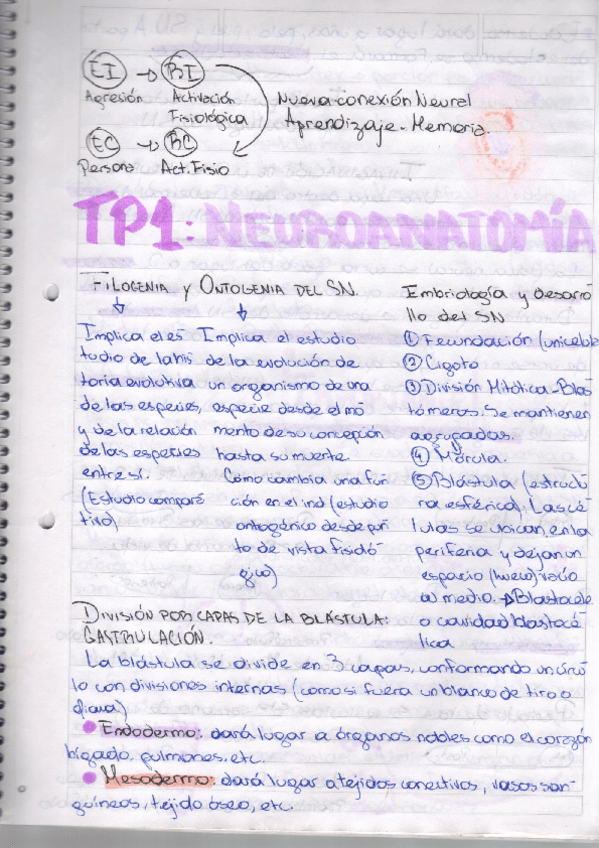 EI → RI
Agresión Activación
Fisiológica
EC → RC
Persona Act. Fisio
Nueva conexión Neural
Aprendizaje - Memoria.
TP1: NEUROANATOMÍA
FILOGENIA y ONTOGENIA DEL SN.
Implica el es
tudio de la his
toria evolutiva
de las especies,
y de la relación
de las especies
entre sí.
(Estudio compara
tivo)
Implica el estudio
de la evolución de
un organismo de una
especie desde el mo
mento de su concepción
hasta su muerte.
Como cambia una fun
ción en el ind (estudio
ontogénico desde pun
to de vista fisioló
gico)
Embriología y desarro
llo del SN
① Fecundación (unicelul
② Cigoto
③ División Mitótica - Blas
tómeros. Se mantienen
agrupadas.
④ Mórula.
⑤ Blástula (estructu
ra esférica). Las cé
lulas se ubican en la
periferia y dejan un
espacio (hueco) vacío
al medio. → Blastocele
o cavidad blastocé
lica
DIVISIÓN POR CAPAS DE LA BLÁSTULA:
GASTRULACIÓN.
La blástula se divide en 3 capas, conformando un círcu
lo con divisiones internas (como si fuera un blanco de tiro o
diana)
• Endodermo: dará lugar a órganos nobles como el corazón
hígado, pulmones, etc.
• Mesodermo: dará lugar a tejidos conectivos, vasos san-
guíneos, tejido óseo, etc.